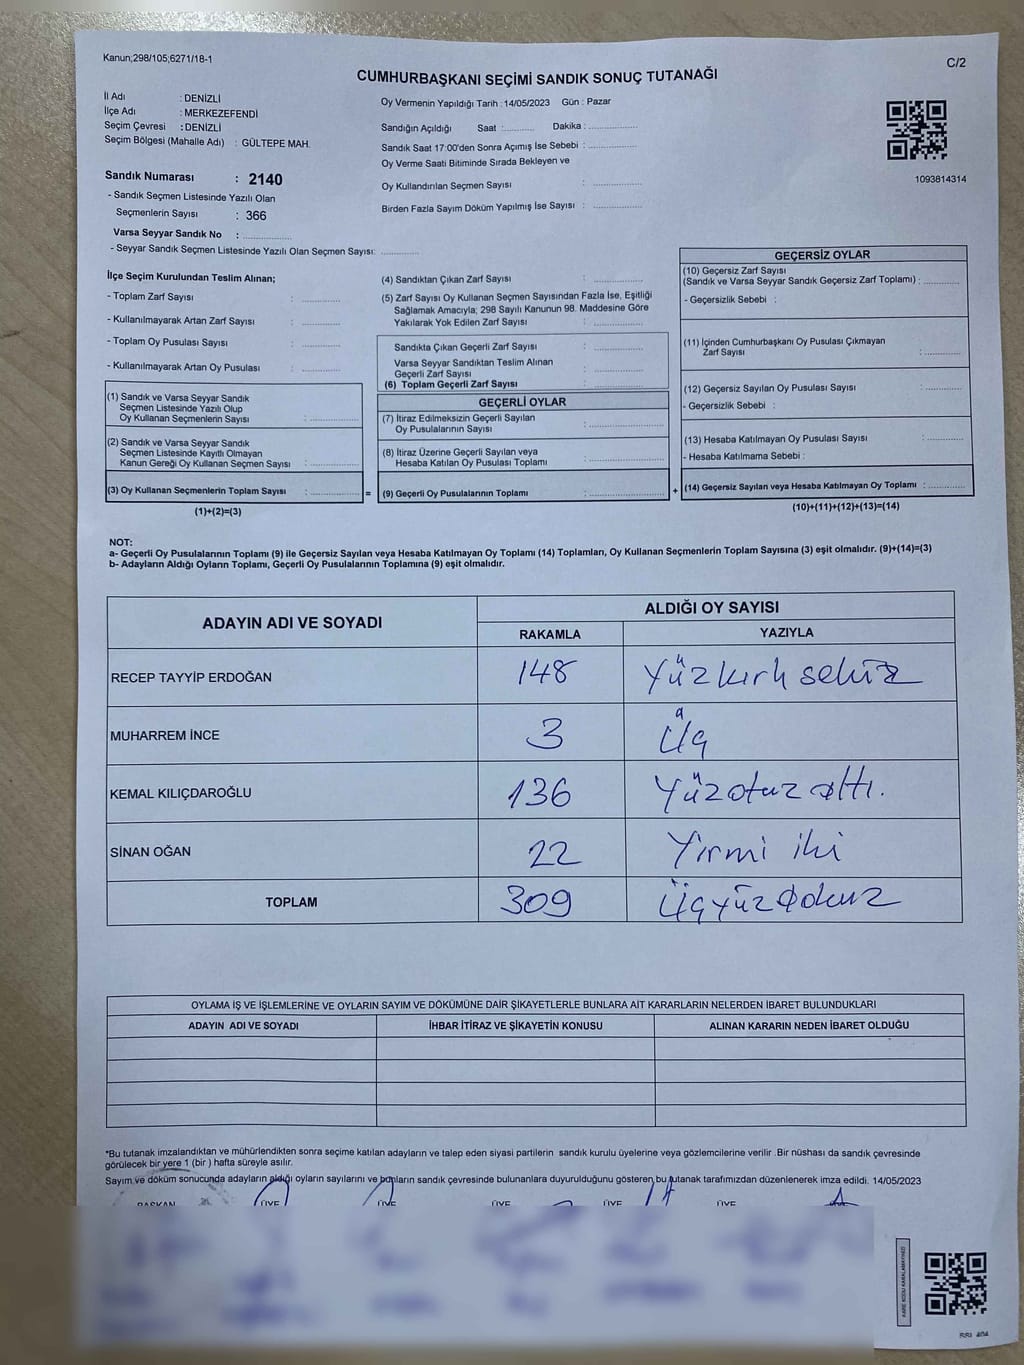 Kanun;298/105;6271/18-1
C/2
CUMHURBAŞKANI SEÇİMİ SANDIK SONUÇ TUTANAĞI
İl Adı : DENİZLİ
İlçe Adı : MERKEZEFENDİ
Seçim Çevresi : DENİZLİ
Seçim Bölgesi (Mahalle Adı) : GÜLTEPE MAH.
Sandık Numarası : 2140
- Sandık Seçmen Listesinde Yazılı Olan
Seçmenlerin Sayısı : 366
Varsa Seyyar Sandık No : ................
- Seyyar Sandık Seçmen Listesinde Yazılı Olan Seçmen Sayısı: ............
Oy Vermenin Yapıldığı Tarih : 14/05/2023 Gün : Pazar
Sandığın Açıldığı Saat :........... Dakika : ................
Sandık Saat 17:00'den Sonra Açımış İse Sebebi : ................
Oy Verme Saati Bitiminde Sırada Bekleyen ve
Oy Kullandırılan Seçmen Sayısı : ................
Birden Fazla Sayım Döküm Yapılmış İse Sayısı : ................
1093814314
İlçe Seçim Kurulundan Teslim Alınan;
- Toplam Zarf Sayısı : ............
- Kullanılmayarak Artan Zarf Sayısı : ............
- Toplam Oy Pusulası Sayısı : ............
- Kullanılmayarak Artan Oy Pusulası : ............
(1) Sandık ve Varsa Seyyar Sandık
Seçmen Listesinde Yazılı Olup
Oy Kullanan Seçmenlerin Sayısı : ................
(2) Sandık ve Varsa Seyyar Sandık
Seçmen Listesinde Kayıtlı Olmayan
Kanun Gereği Oy Kullanan Seçmen Sayısı : ................
(3) Oy Kullanan Seçmenlerin Toplam Sayısı : ................
(1)+(2)=(3)
(4) Sandıktan Çıkan Zarf Sayısı : ................
(5) Zarf Sayısı Oy Kullanan Seçmen Sayısından Fazla İse, Eşitliği
Sağlamak Amacıyla; 298 Sayılı Kanunun 98. Maddesine Göre
Yakılarak Yok Edilen Zarf Sayısı : ................
Sandıkta Çıkan Geçerli Zarf Sayısı : ................
Varsa Seyyar Sandıktan Teslim Alınan
Geçerli Zarf Sayısı : ................
(6) Toplam Geçerli Zarf Sayısı : ................
GEÇERLİ OYLAR
(7) İtiraz Edilmeksizin Geçerli Sayılan
Oy Pusulalarının Sayısı : ................
(8) İtiraz Üzerine Geçerli Sayılan veya
Hesaba Katılan Oy Pusulası Toplamı : ................
= (9) Geçerli Oy Pusulalarının Toplamı : ................
GEÇERSİZ OYLAR
(10) Geçersiz Zarf Sayısı
(Sandık ve Varsa Seyyar Sandık Geçersiz Zarf Toplamı) : ............
- Geçersizlik Sebebi :
(11) İçinden Cumhurbaşkanı Oy Pusulası Çıkmayan
Zarf Sayısı : ............
(12) Geçersiz Sayılan Oy Pusulası Sayısı : ............
- Geçersizlik Sebebi :
(13) Hesaba Katılmayan Oy Pusulası Sayısı : ............
- Hesaba Katılmama Sebebi :
+ (14) Geçersiz Sayılan veya Hesaba Katılmayan Oy Toplamı : ............
(10)+(11)+(12)+(13)=(14)
NOT:
a- Geçerli Oy Pusulalarının Toplamı (9) ile Geçersiz Sayılan veya Hesaba Katılmayan Oy Toplamı (14) Toplamları, Oy Kullanan Seçmenlerin Toplam Sayısına (3) eşit olmalıdır. (9)+(14)=(3)
b- Adayların Aldığı Oyların Toplamı, Geçerli Oy Pusulalarının Toplamına (9) eşit olmalıdır.
ADAYIN ADI VE SOYADI
ALDIĞI OY SAYISI
RAKAMLA YAZIYLA
RECEP TAYYİP ERDOĞAN 148 Yüzkırk sekiz
MUHARREM İNCE 3 Üç
KEMAL KILIÇDAROĞLU 136 Yüzotuz altı.
SİNAN OĞAN 22 Yirmi iki
TOPLAM 309 Üçyüzdokuz
OYLAMA İŞ VE İŞLEMLERİNE VE OYLARIN SAYIM VE DÖKÜMÜNE DAİR ŞİKAYETLERLE BUNLARA AİT KARARLARIN NELERDEN İBARET BULUNDUKLARI
ADAYIN ADI VE SOYADI İHBAR İTİRAZ VE ŞİKAYETİN KONUSU ALINAN KARARIN NEDEN İBARET OLDUĞU
*Bu tutanak imzalandıktan ve mühürlendikten sonra seçime katılan adayların ve talep eden siyasi partilerin sandık kurulu üyelerine veya gözlemcilerine verilir .Bir nüshası da sandık çevresinde
görülecek bir yere 1 (bir ) hafta süreyle asılır.
Sayım ve döküm sonucunda adayların aldığı oyların sayılarını ve bunların sandık çevresinde bulunanlara duyurulduğunu gösteren bu tutanak tarafımızdan düzenlenerek imza edildi. 14/05/2023
BAŞKAN ÜYE ÜYE ÜYE ÜYE ÜYE
KARE KODU KARALAMAYINIZ!